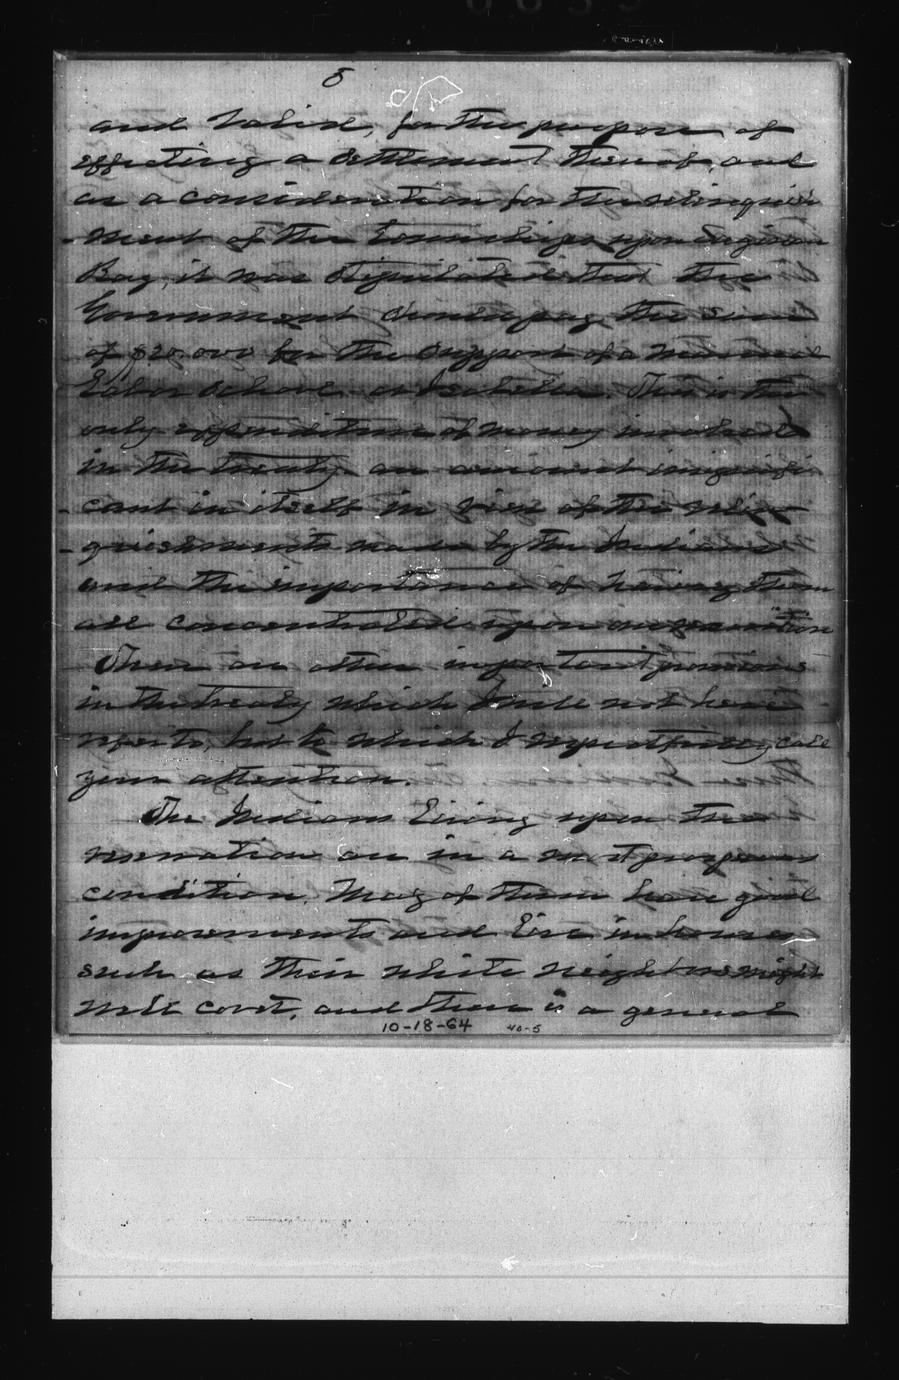 5
and valid, for the purpose of
effecting a settlement thereof, and
as a consideration for the relinquish
-ment of the Townships upon Saginaw
Bay, it was stipulated that the
Government should pay the sum
of $20.000 for the support of a Manual
Labor School at Isabella. This is the
only expenditure of money involved
in the treaty an amount insignifi
-cant in itself in view of the relin
-quishments made by the Indians
and the importance of having them
all concentrated upon one reservation
There are other important provisions
in the treaty which I will not here
refer to, but to which I respectfully call
your attention.
The Indians living upon the
reservation are in a most prosperous
condition. May of them have good
improvements and live in houses
such as their white neighbors might
well covet, and there is a general
10-18-64 40-5